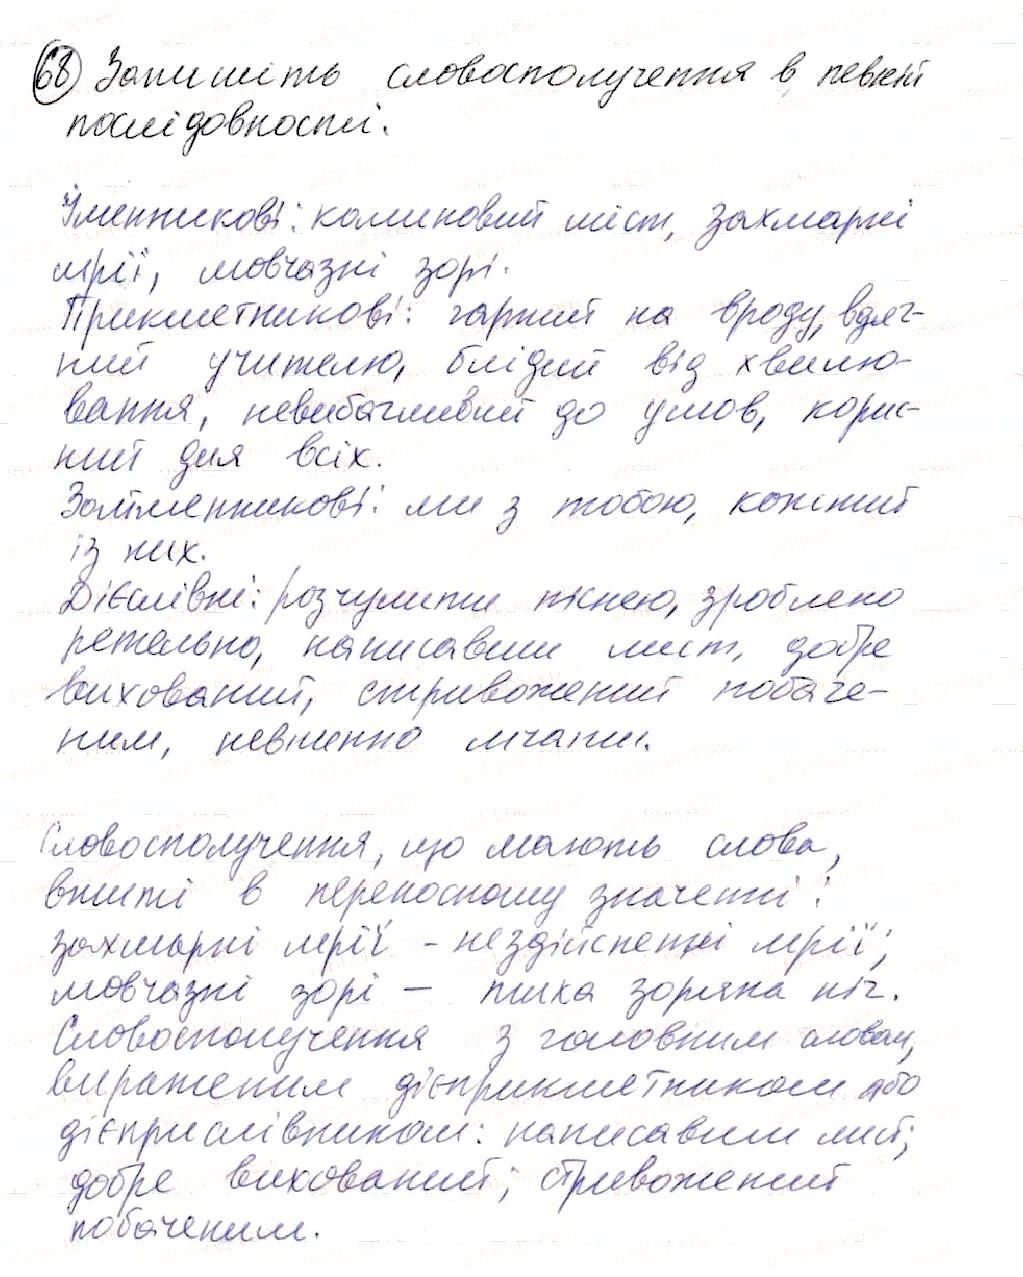 68 Запишіть словосполучення в певній
послідовності.
Іменникові: калиновий міст, захмарні
мрії, мовчазні зорі.
Прикметникові: гарний на вроду, вдяч-
ний учителю, блідий від хвилю-
вання, невибагливий до умов, корис-
ний для всіх.
Займенникові: ми з тобою, кожний
із них.
Дієслівні: розчулити піснею, зроблено
ретельно, написавши лист, добре
вихований, стривожений побаче-
ним, невпинно мчати.
Словосполучення, що мають слова,
вжиті в переносному значенні:
захмарні мрії - нездійсненні мрії;
мовчазні зорі — тиха зоряна ніч.
Словосполучення з головним словом,
вираженим дієприкметником або
дієприслівником: написавши лист;
добре вихований; стривожений
побаченим.